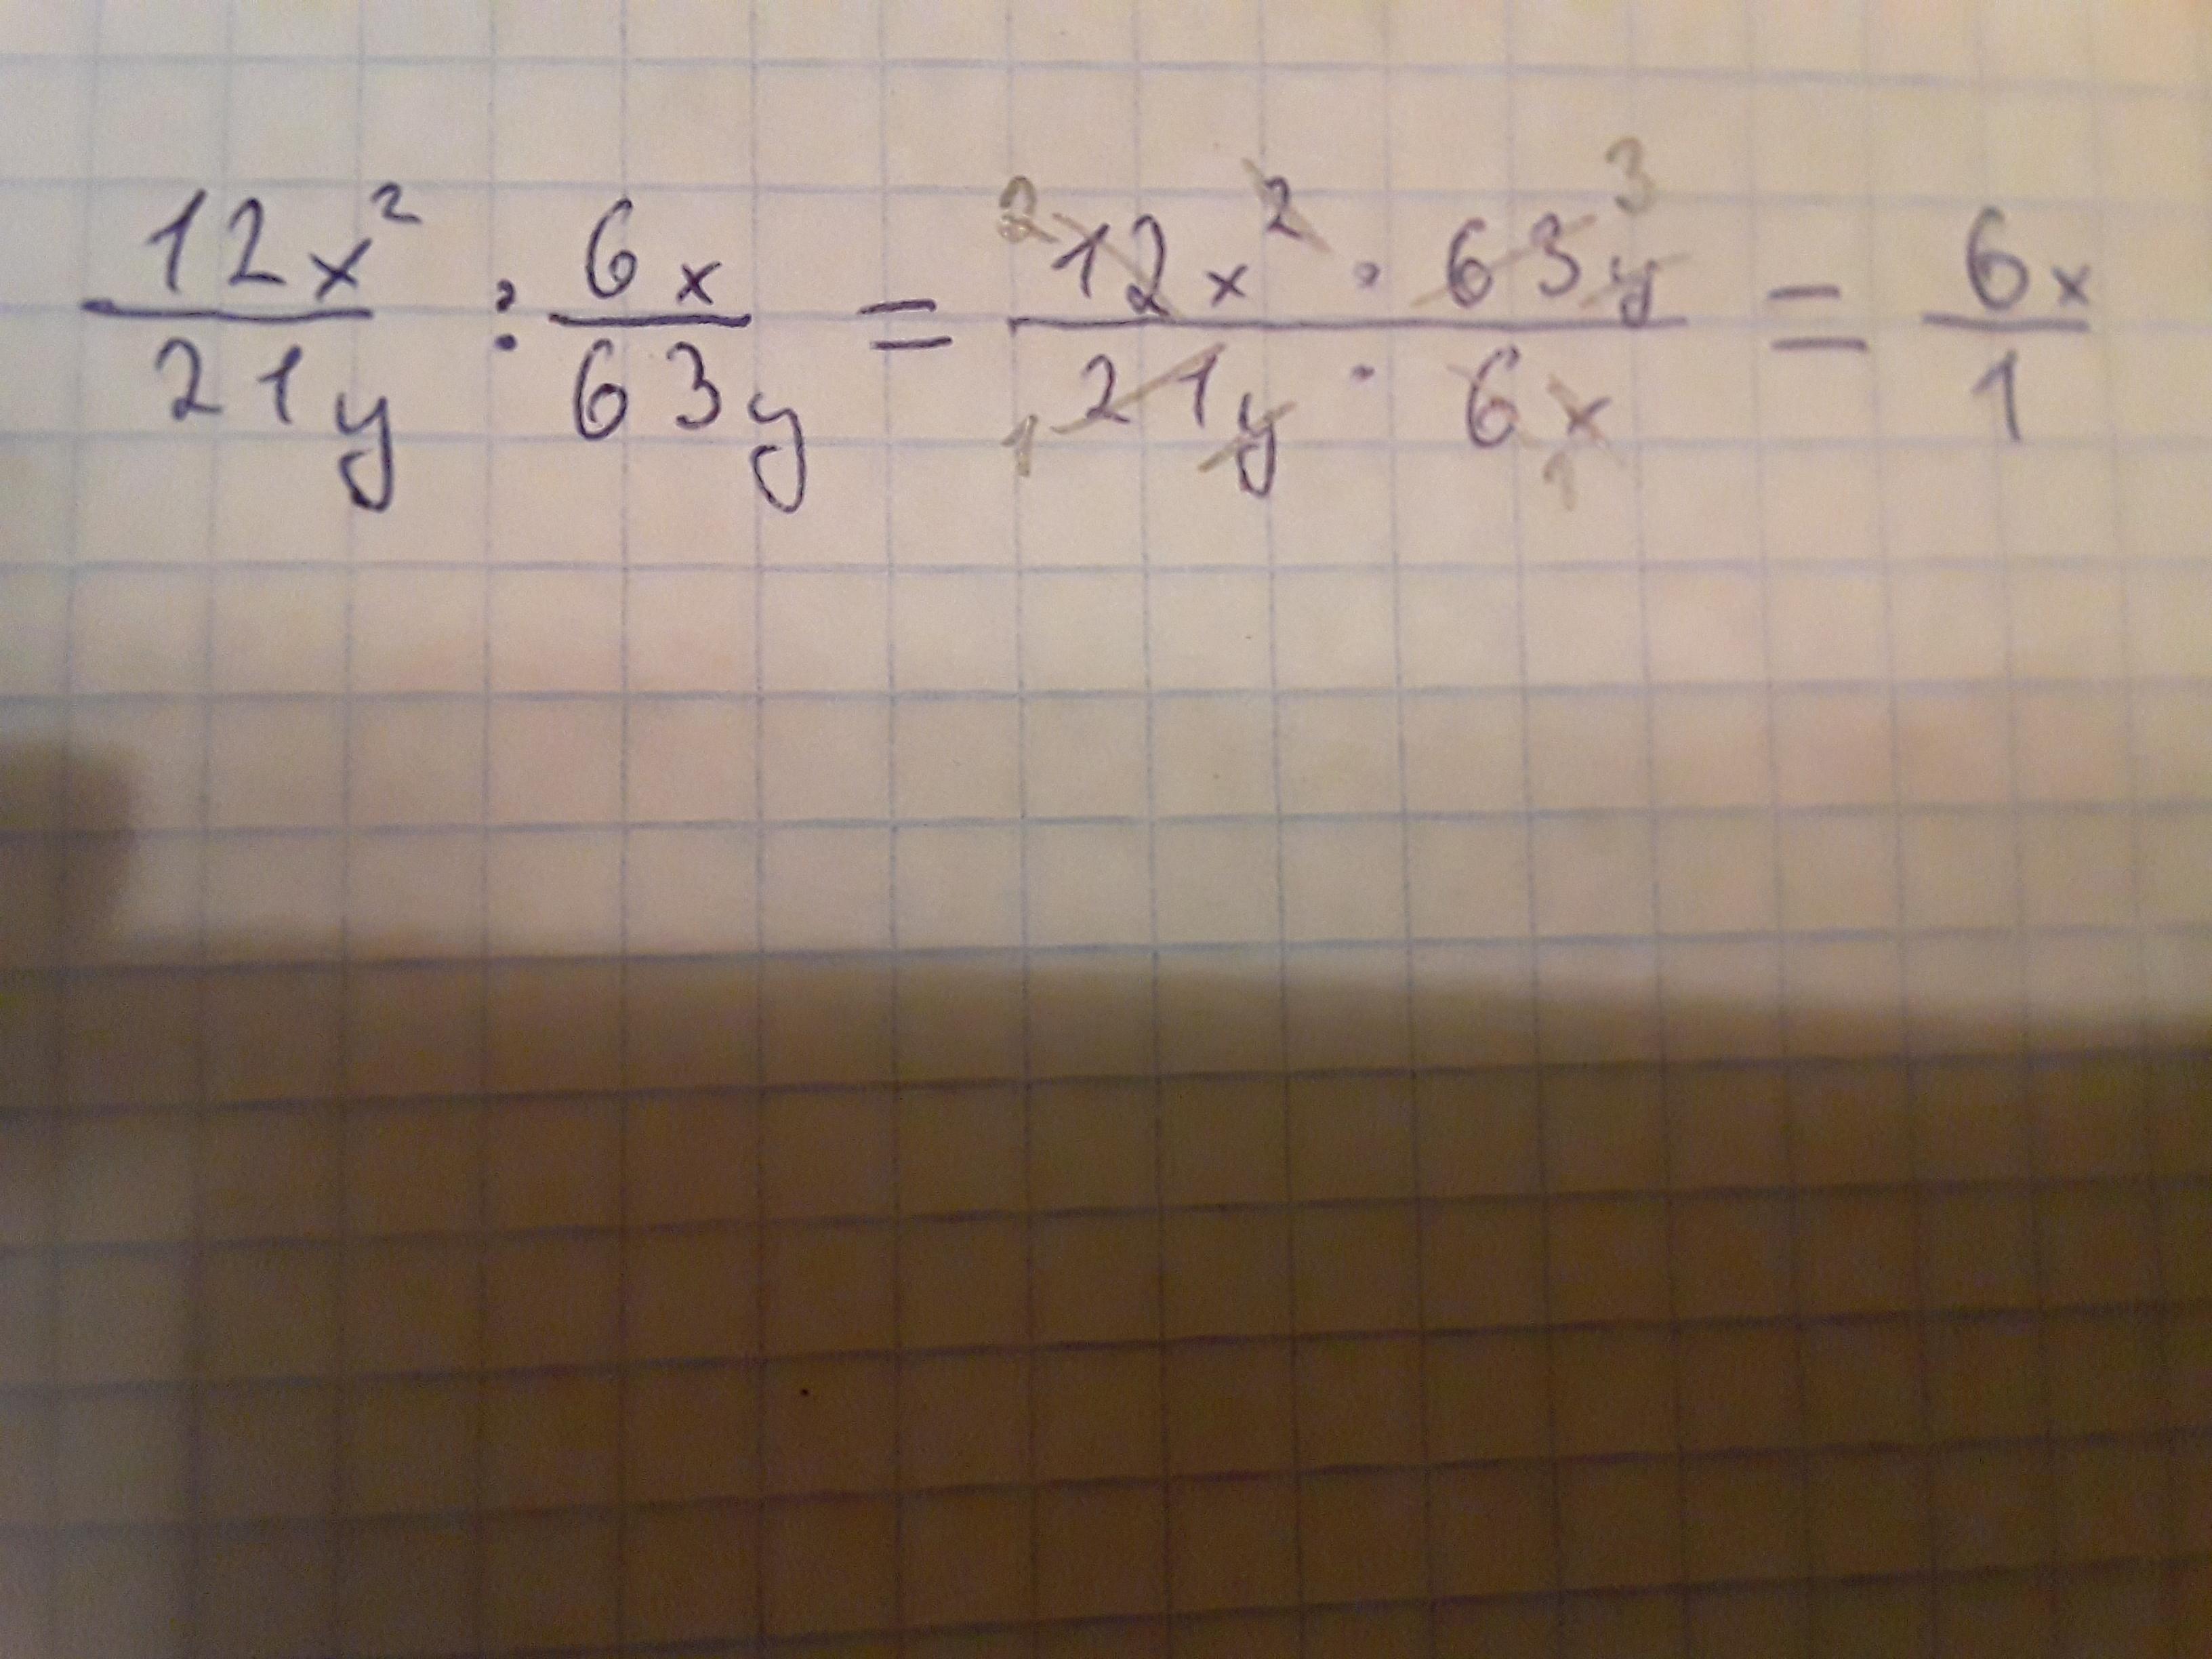 12x² / 21y : 6x / 63y = 2 12x² · 63y 3 / 1 21y · 6x 1 = 6x / 1